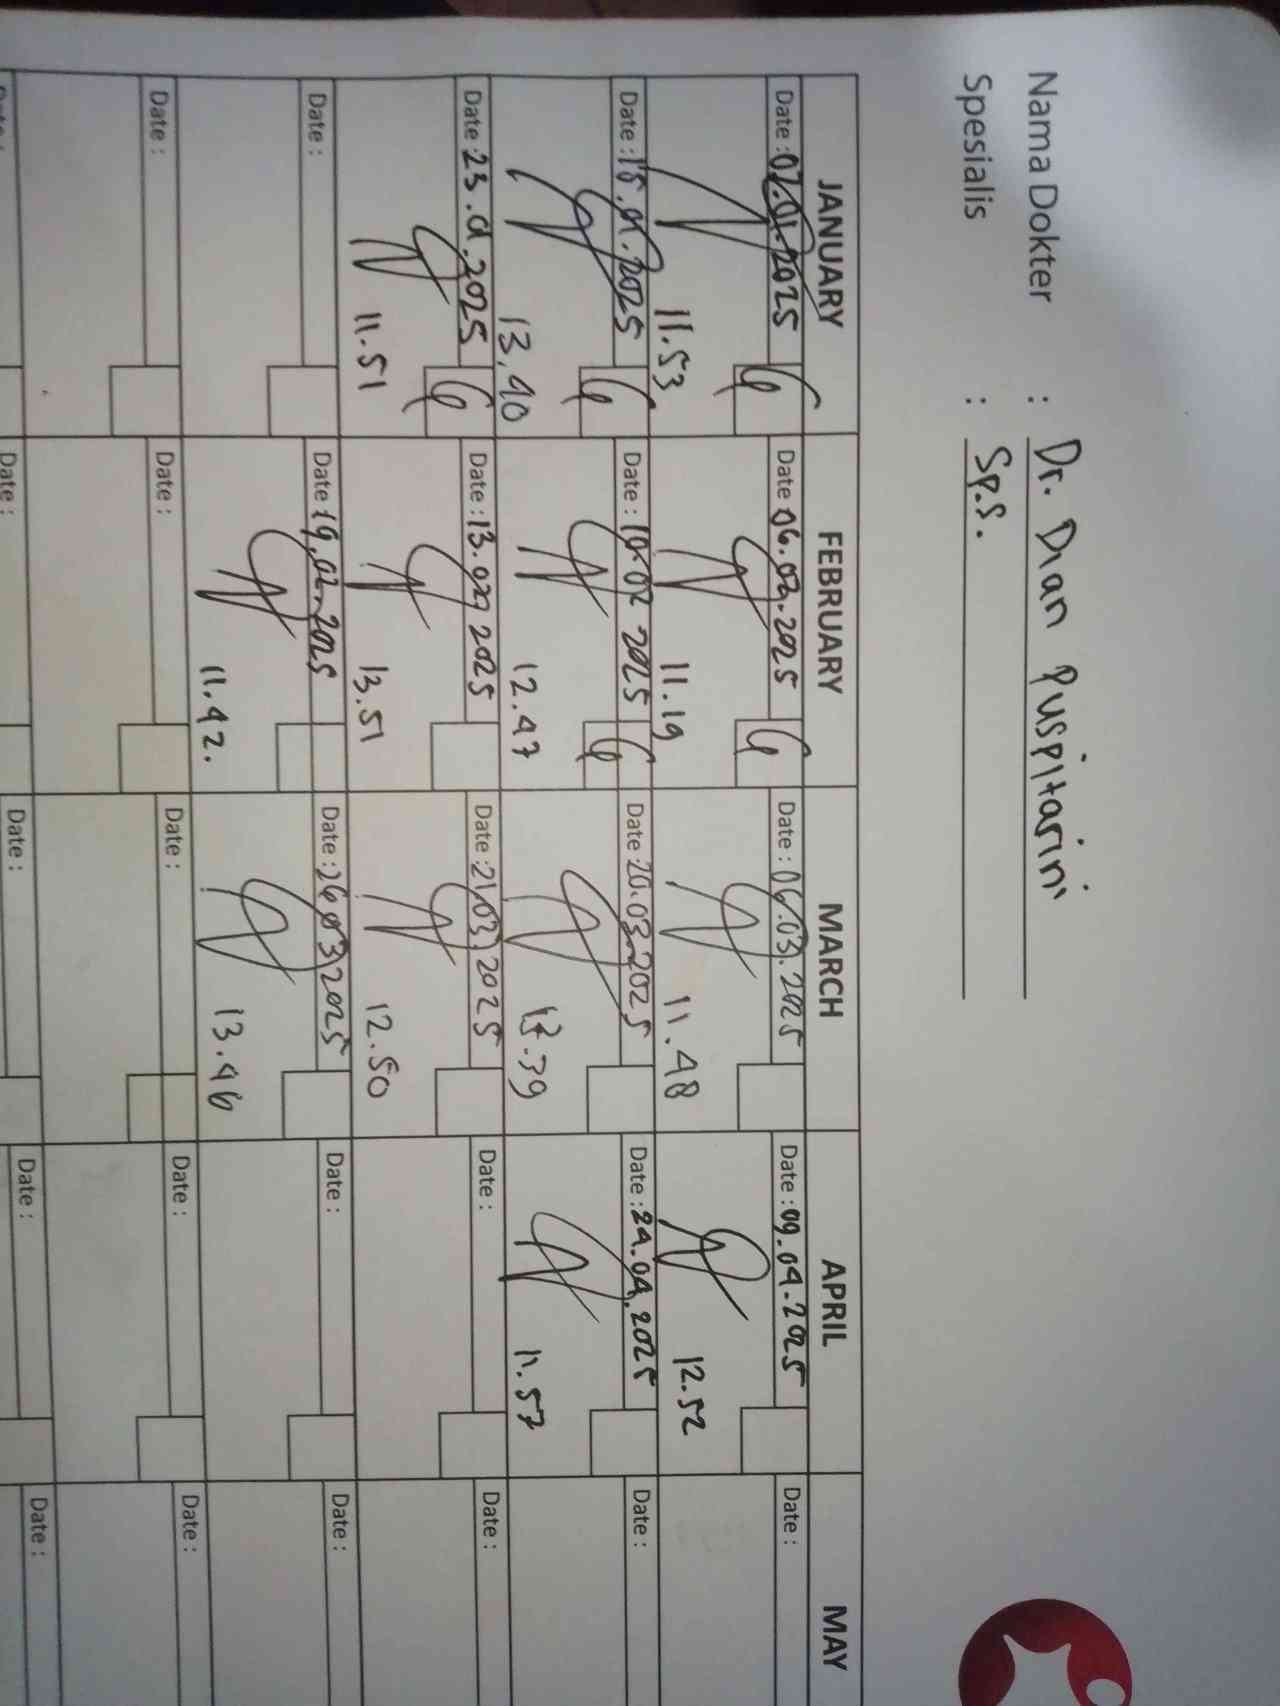 Nama Dokter : Dr. Dian Puspitarini
Spesialis : Sp.S.
JANUARY FEBRUARY MARCH APRIL MAY
Date : 07.01.2025 Date : 06.02.2025 Date : 06.03.2025 Date : 09.04.2025 Date :
11.53 11.19 11.48 12.52
Date : 15.01.2025 Date : 10.02 2025 Date : 20.03.2025 Date : 24.04.2025 Date :
13.40 12.47 13.39 11.57
Date : 23.01.2025 Date : 13.02 2025 Date : 21.03.2025 Date : Date :
11.51 13.51 12.50
Date : Date : 19.02.2025 Date : 26.03.2025 Date : Date :
11.42. 13.46
Date : Date : Date : Date : Date :
Date : Date : Date : Date : Date :